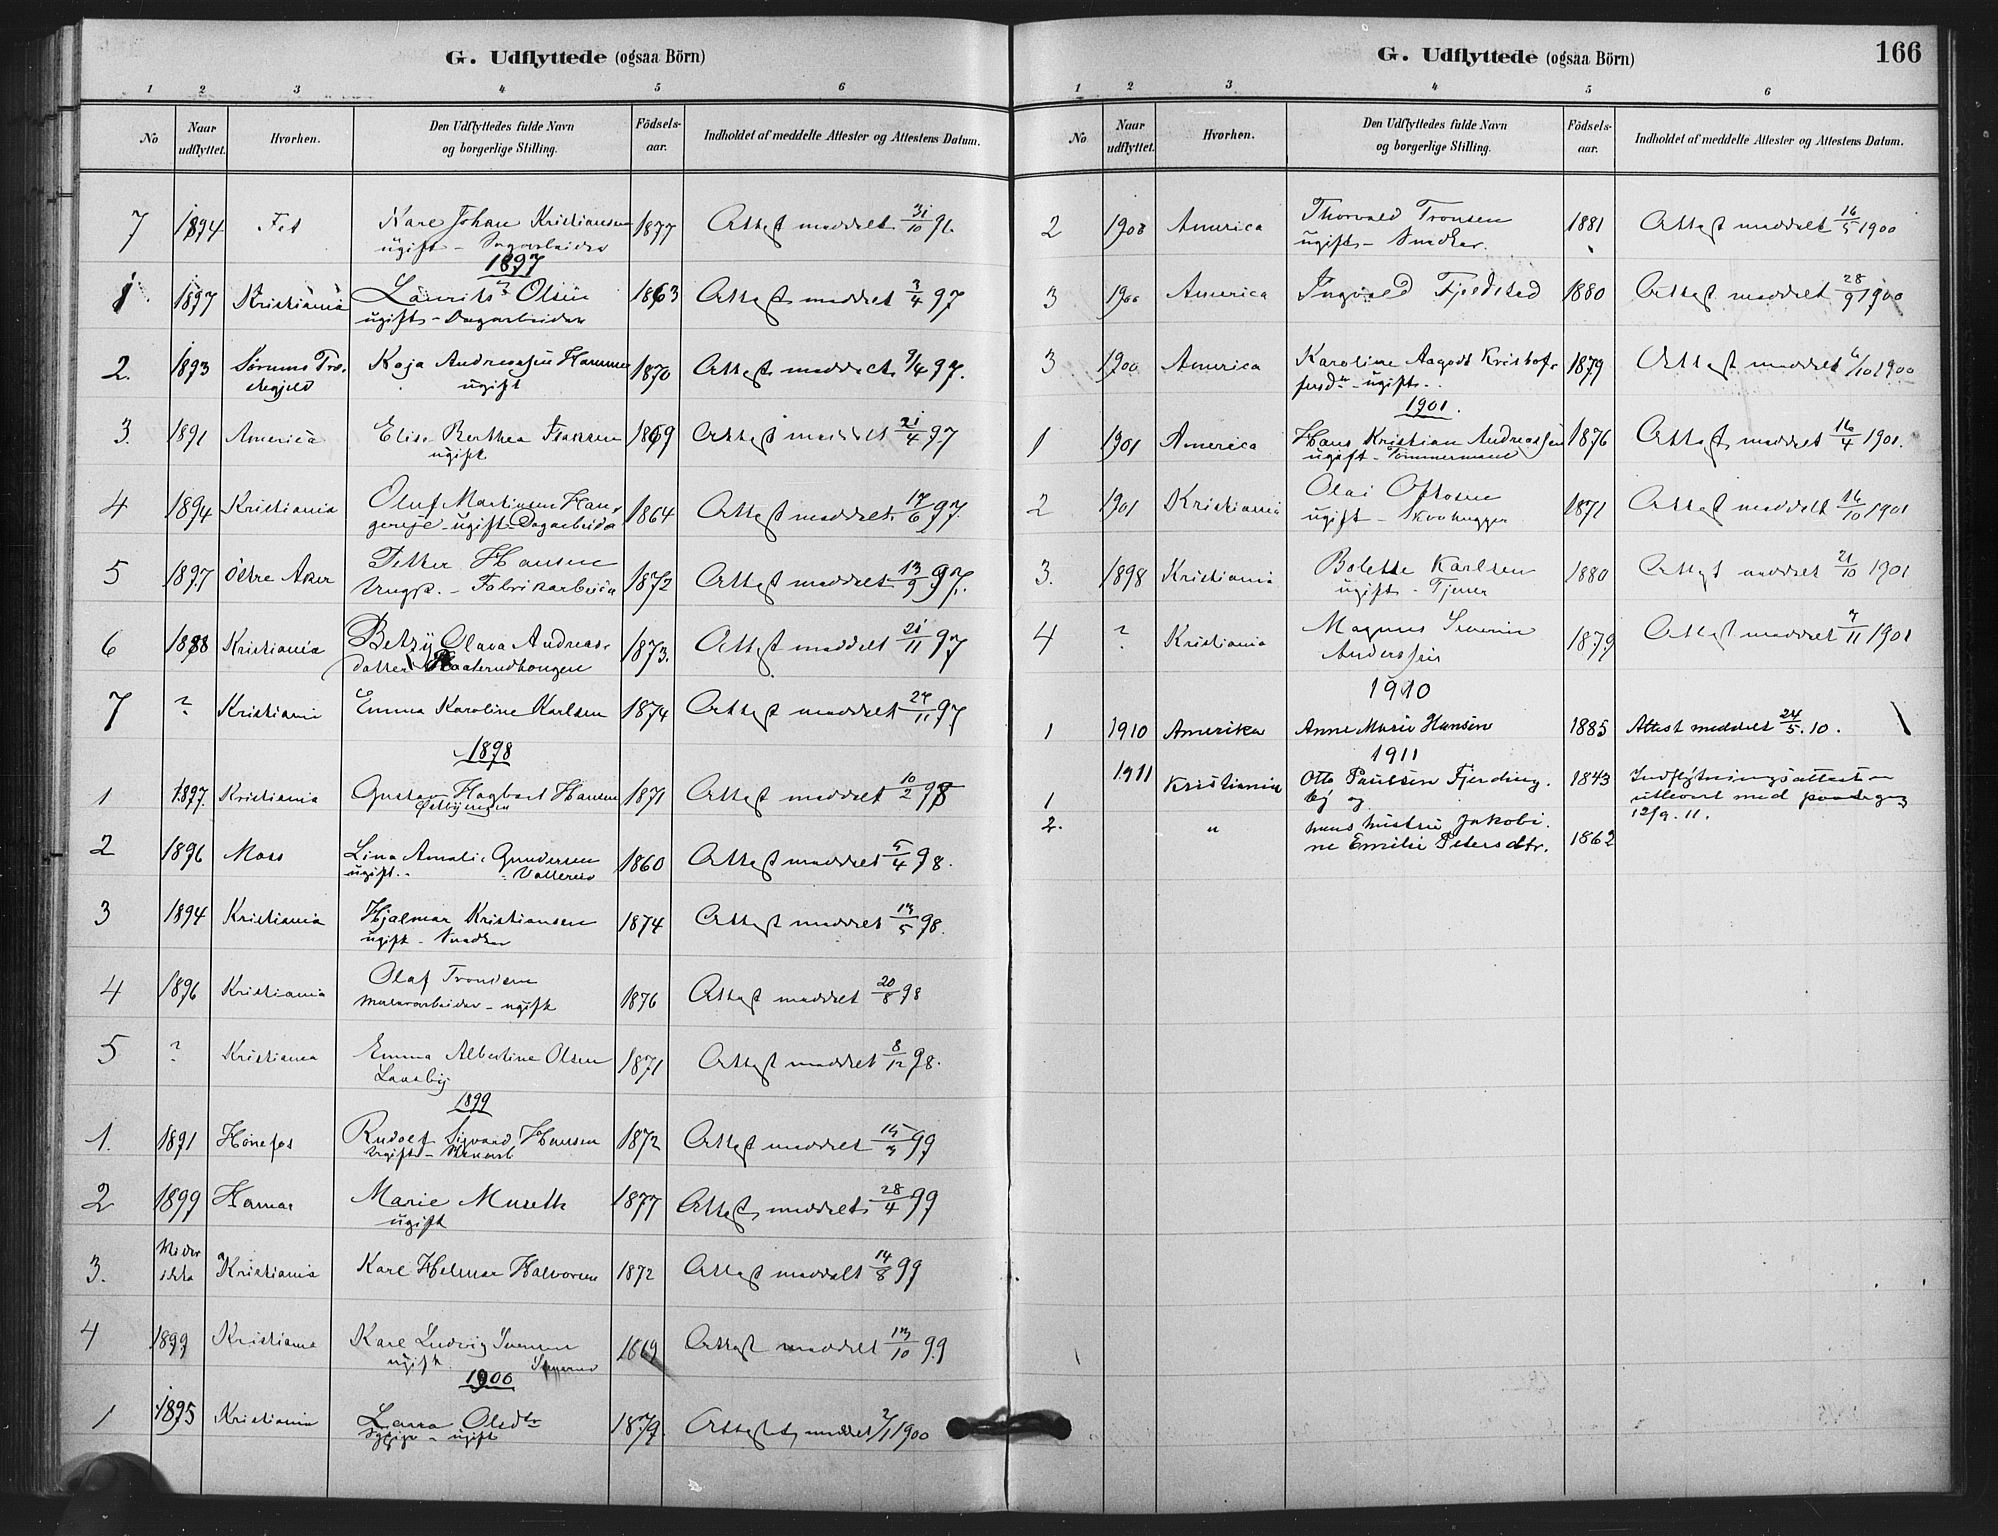 G. Udflyttede (ogsaa Börn)
1 2 3 4 5 6
No
Naar udflyttet.
Hvorhen.
Den Udflyttedes fulde Navn og borgerlige Stilling.
Födsels-aar.
Indholdet af meddelte Attester og Attestens Datum.
7 1894 Fet Karl Johan Kristiansen 1877 Attest meddelt 31/10 96.
ugift - Sagarbeider
1897
1 1897 Kristiania Laurits Olsen 1863 Attest meddelt 3/4 97
ugift - Dagarbeider
2. 1893 Sørums Præ- Kaja Andreassen Hammer 1870 Attest meddelt 9/4 97.
stegjeld ugift
3. 1891 America Elise Berthea Isaksen 1869 Attest meddelt 21/4 97
ugift
4 1894 Kristiania Oluf Martinsen Hau- 1864 Attest meddelt 17/6 97.
gereje - ugift Dagarbeider
5 1897 Östre Aker Petter Hansen 1872 Attest meddelt 13/9 97.
Ungk. - Fabrikarbeider
6 1888 Kristiania Betzy Olava Andreas- 1873. Attest meddelt 21/11 97
datter
7 ? Kristiania Emma Karoline Karlsen 1874 Attest meddelt 27/11 97
1898
1 1897. Kristiania Gustav Hagbart Hansen 1871 Attest meddelt 10/2 98
2 1896 Moss Lina Amalie Gundersen 1860 Attest meddelt 5/4 98.
ugift.
3 1894 Kristiania Hjalmar Kristiansen 1874 Attest meddelt 13/5 98.
ugift - Snedker
4 1896 Kristiania Olaf Tronsen 1876 Attest meddelt 20/8 98
Murerarbeider - ugift
5 ? Kristiania Emma Albertine Olsen 1871 Attest meddelt 8/12 98.
Laasby
1899
1. 1891 Hönefos Rudolf Sigvard Hansen 1872 Attest meddelt 15/3 99
ugift -
2 1899 Hamar Marie Museth 1877 Attest meddelt 28/4 99
ugift
3. Vides ikke Kristiania Karl Helmer Halvorsen 1872 Attest meddelt 14/8 99
4 1899 Kristiania Karl Ludvig Svensen 1869 Attest meddelt 13/10 99
ugift.
1900
1 1895 Kristiania Laura Olsdtr 1879. Attest meddelt 2/1 1900
Sypige - ugift
G. Udflyttede (ogsaa Börn) 166
1 2 3 4 5 6
No
Naar udflyttet.
Hvorhen.
Den Udflyttedes fulde Navn og borgerlige Stilling.
Födsels-aar.
Indholdet af meddelte Attester og Attestens Datum.
2 1900 America Thorvald Tronsen 1881 Attest meddelt 16/5 1900
ugift - Snedker.
3 1900 America Ingvald Fjeldstad 1880 Attest meddelt 28/9 1900
3 1900 America Karoline Aagodt Kristof- 1879 Attest meddelt 6/10 1900
fersdtr - ugift.
1901.
1 1901 America Hans Kristian Andreassen 1876 Attest meddelt 16/4 1901.
ugift - Tømmermand
2 1901 Kristiania Olai Ottosen 1871 Attest meddelt 16/10 1901
ugift - Skovhugger
3. 1898 Kristiania Bolette Karlsen 1880 Attest meddelt 21/10 1901
ugift - Tjener
4 ? Kristiania Magnus Severin 1879 Attest meddelt 7/11 1901
Anderssen
1910
1 1910 Amerika Anne Marie Hansen 1885 Attest meddelt 24/5. 10.
1911
1 1911 Kristiania Otto Paulsen Fjerding- 1843 Indflytningsattesten
by og utlevert med paategn
2. " hans hustru Jakobi- 1862 12/9. 11.
ne Emilie Petersdtr.